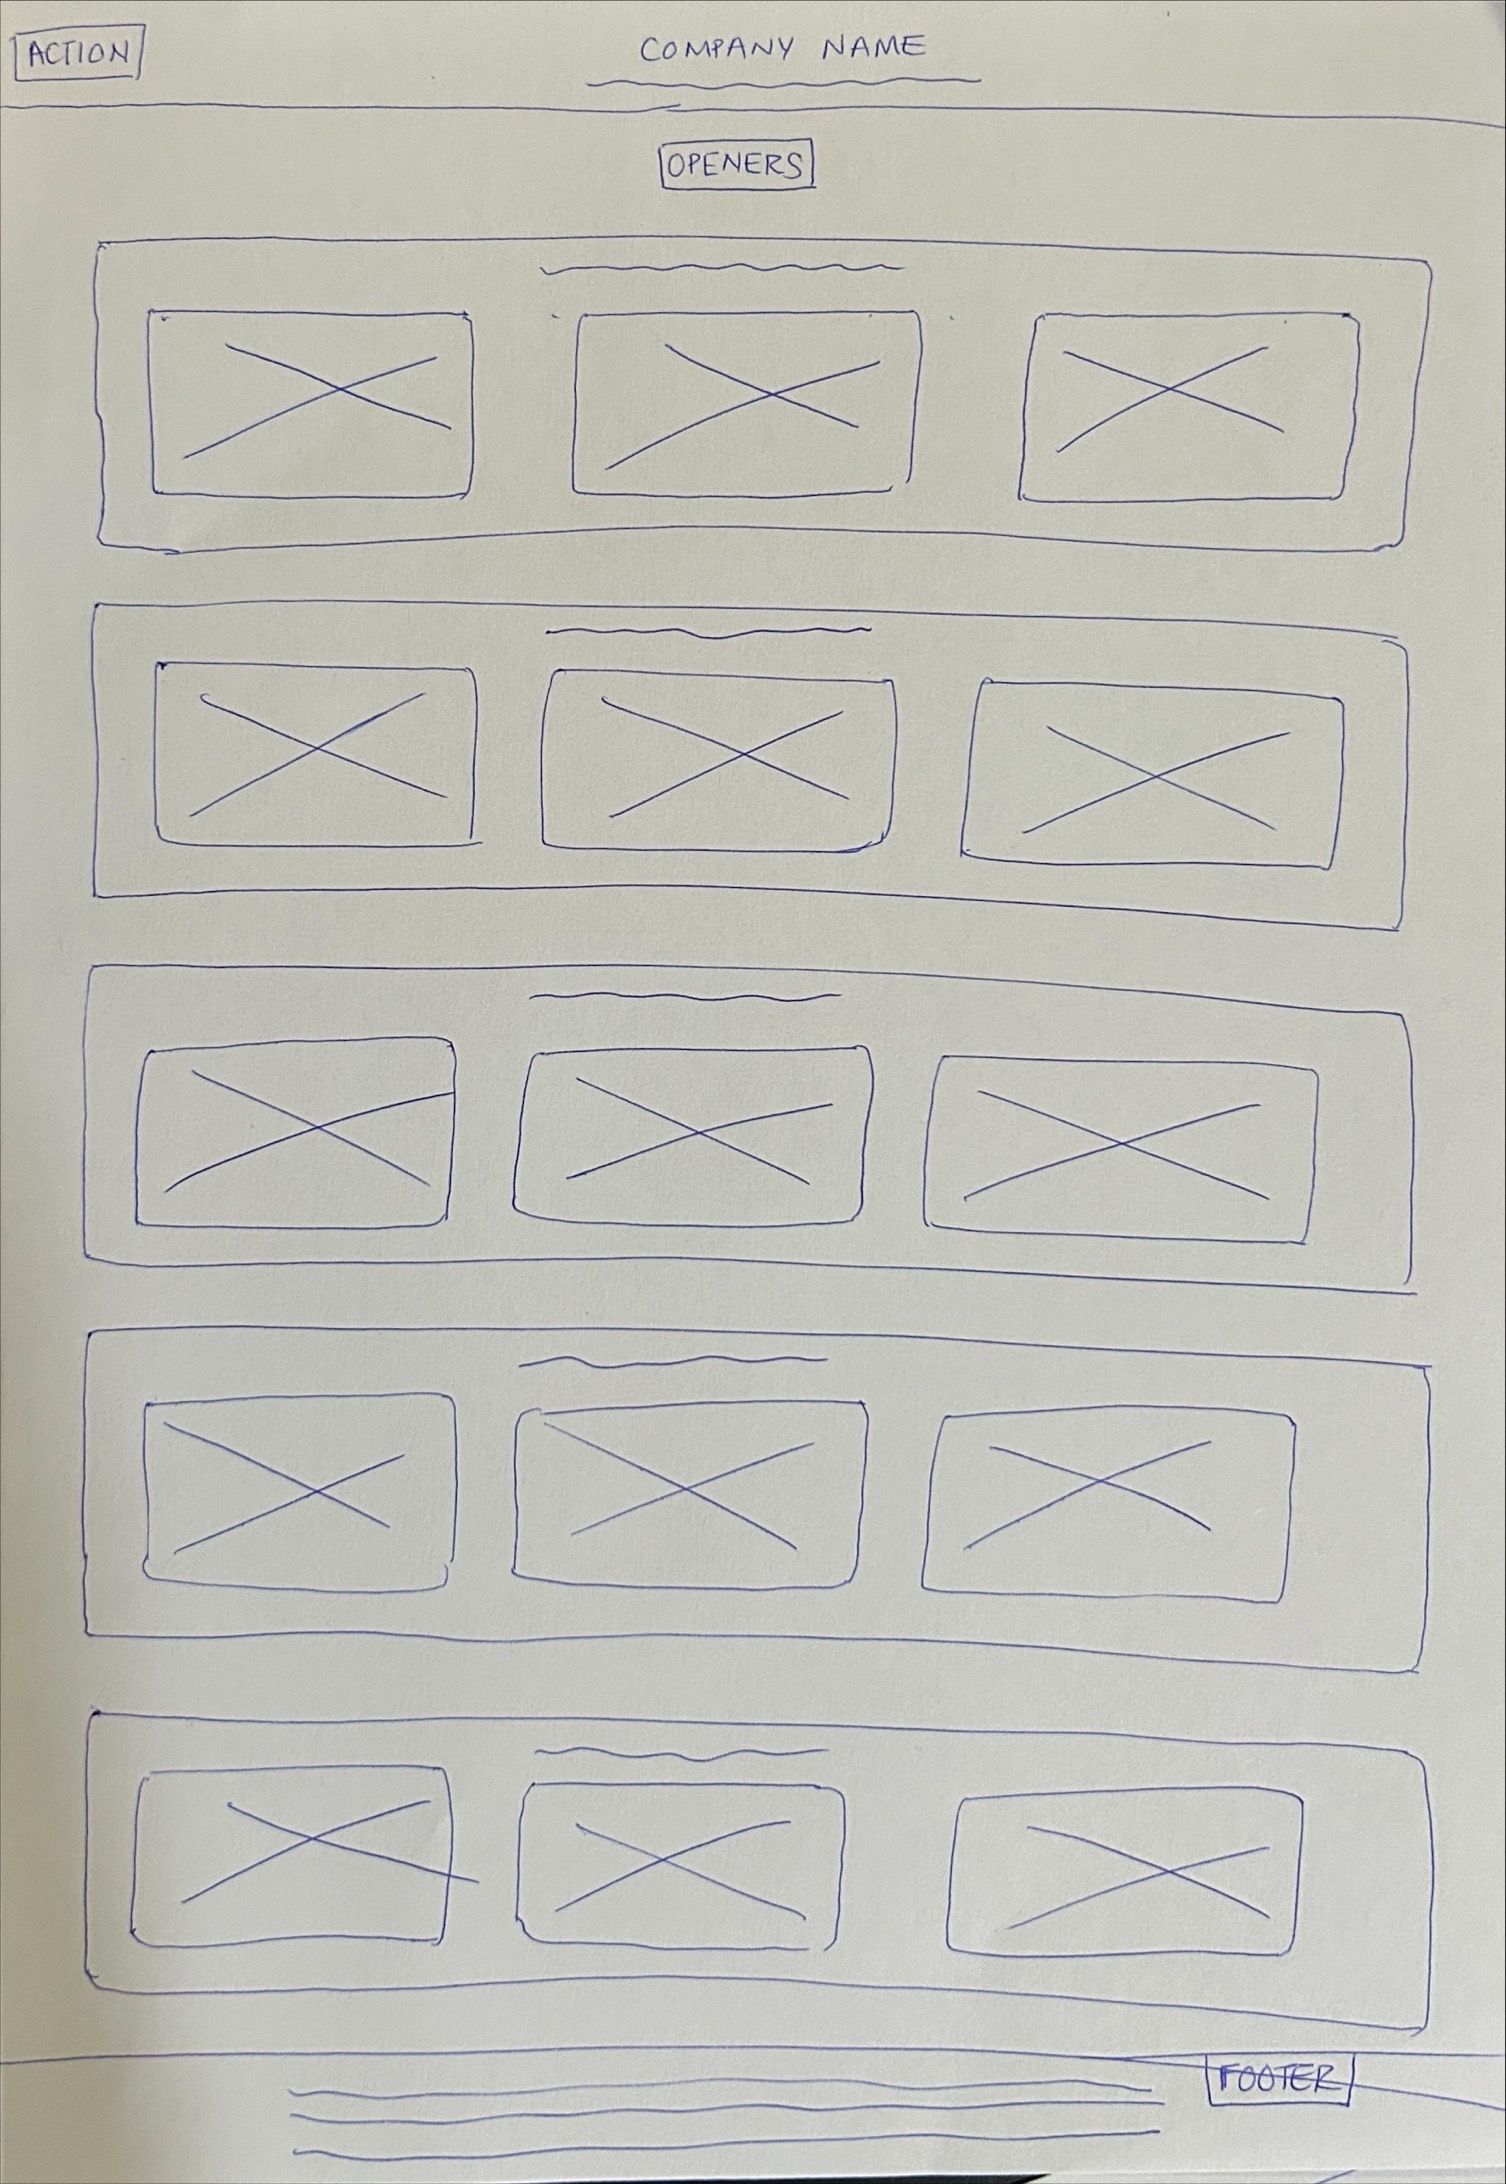 ACTION
COMPANY NAME
OPENERS
FOOTER